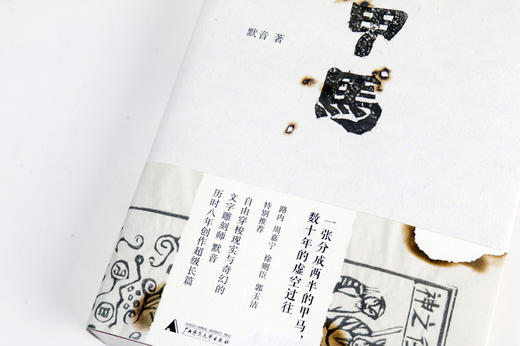 甲馬
默音 著
一张分成两半的甲马，
数十年的虚空过往
路内 周嘉宁 徐则臣 郭玉洁
特别推荐
自由穿梭现实与奇幻的
文字雕刻师 默音
历时八年创作超级长篇
广西师范大学出版社
神之